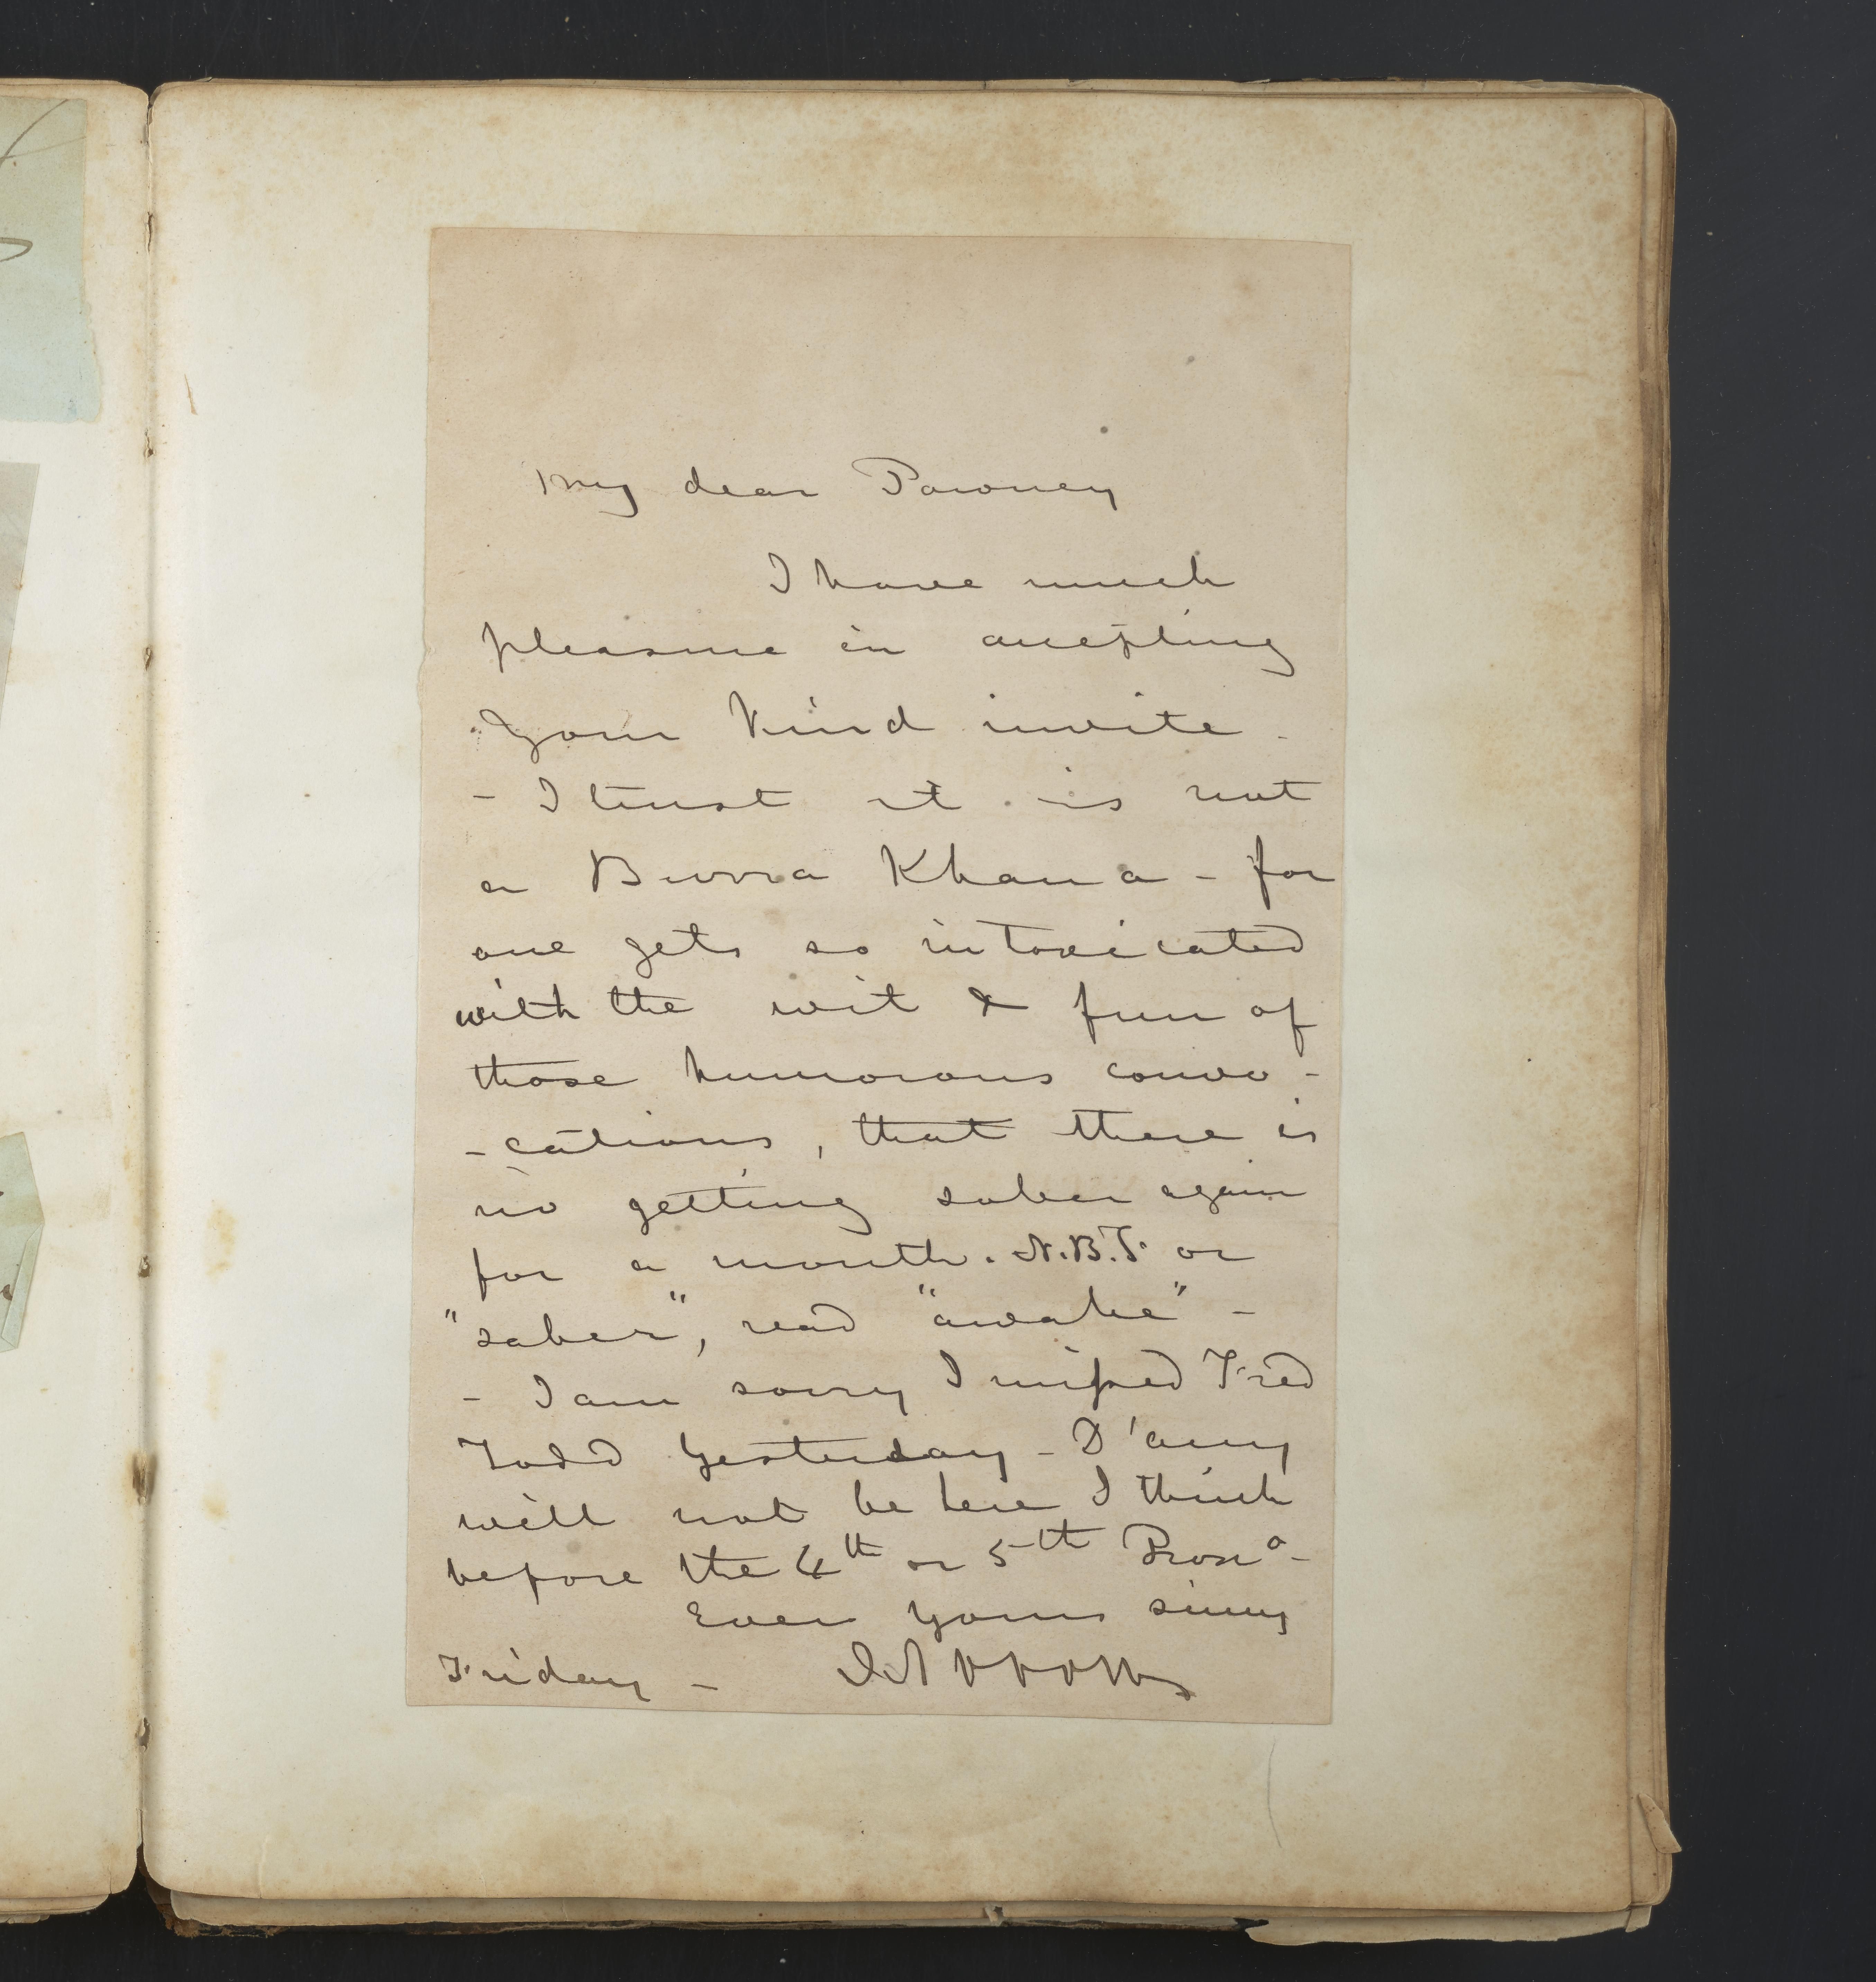 My dear Pawney
I have much
pleasure in accepting
your kind invite -
- I trust it is not
a Burra Khana - for
one gets so intoxicated
with the wit & fun of
those humorous convo -
- cations, that there is
no getting sober again
for a month. N.B. For
"sober", read "awake" -
- I am sorry I missed Fred
Todd yesterday - D'
will not be here I think
before the 4th or 5th Proxo -
Ever yours
Friday -